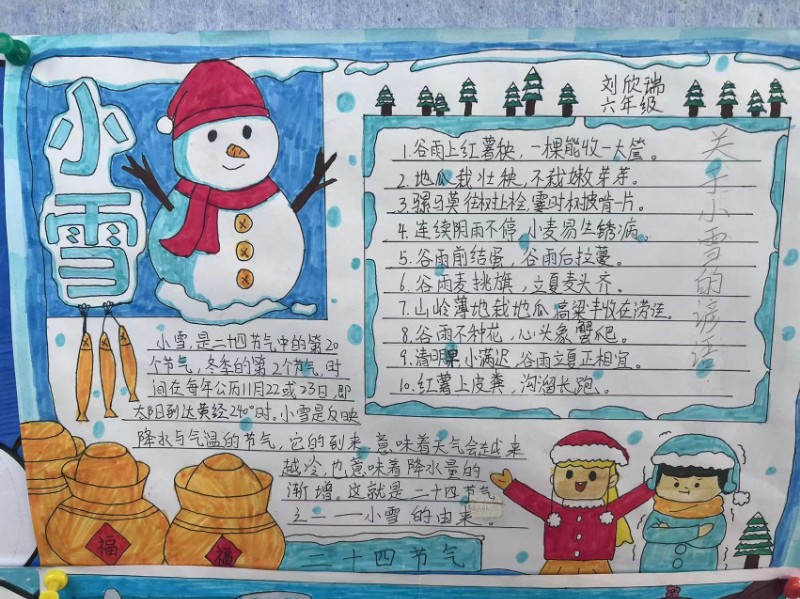 小雪
刘欣瑞
六年级
关于小雪的谚语:
1.谷雨上红薯秧，一棵能收一大筐。
2.地瓜栽壮秧，不栽嫩芽芽。
3.骡马莫往树上拴，霎时树披肯一片。
4.连续阴雨不停，小麦易生锈病。
5.谷雨前结蛋，谷雨后拉蔓。
6.谷雨麦挑旗，立夏麦头齐。
7.山岭薄地栽地瓜，高粱丰收在涝洼。
8.谷雨不种花，心头象蟹爬。
9.清明果小满迟，谷雨立夏正相宜。
10.红薯上皮粪，沟溜长跑。
小雪，是二十四节气中的第20
个节气，冬季的第2个节气，时
间在每年公历11月22或23日，即
太阳到达黄经240°时。小雪是反映
降水与气温的节气，它的到来，意味着天气会越来
越冷，也意味着降水量的
渐增。这就是二十四节气
之一——小雪的由来。
福
福
二十四节气